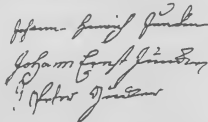 Johann Henrich Juncker
Johann Ernst Juncker
Peter Juncker